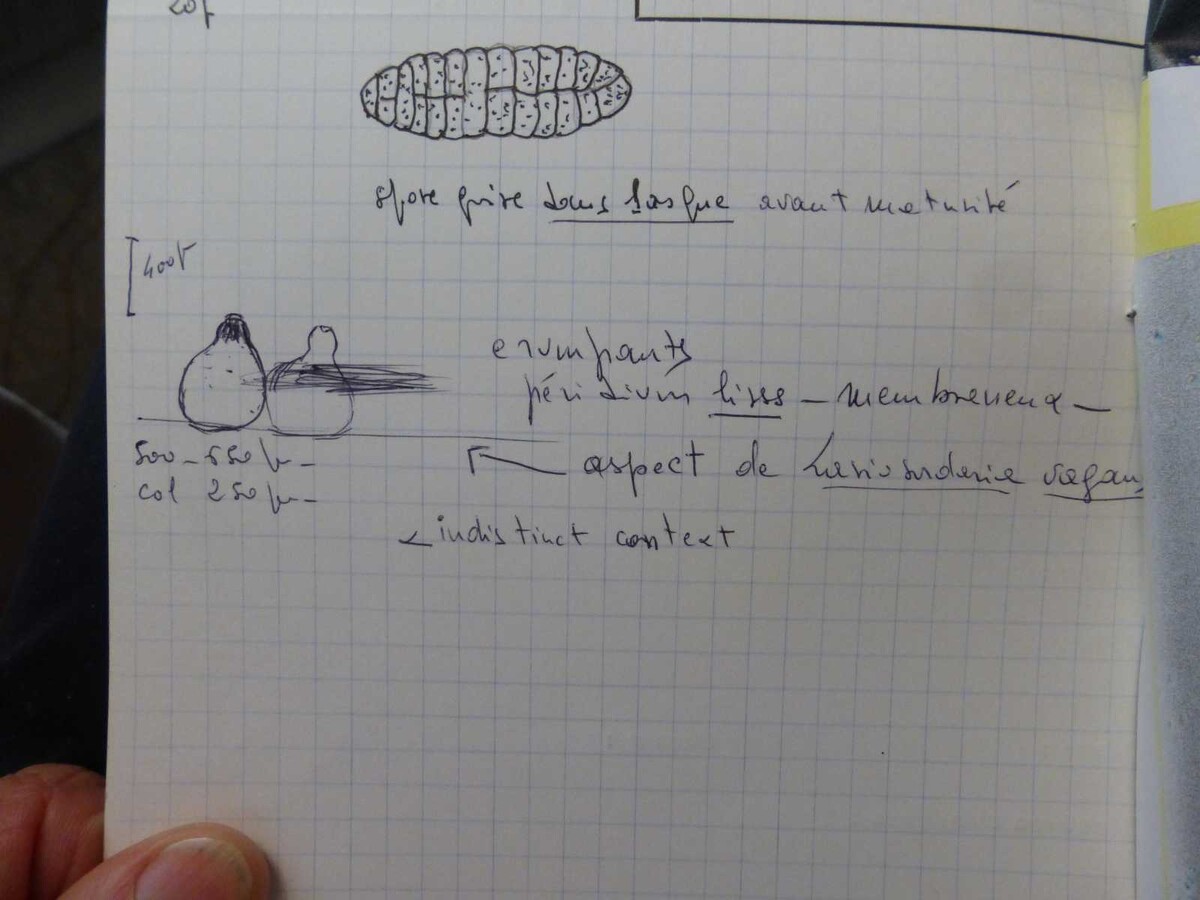 20µ
spore prise dans l'asque avant maturité
400µ
erumpants
péridium lisse - membraneux -
500-550µ -
aspect de Lasiosordaria vagans
col 250µ -
indistinct context